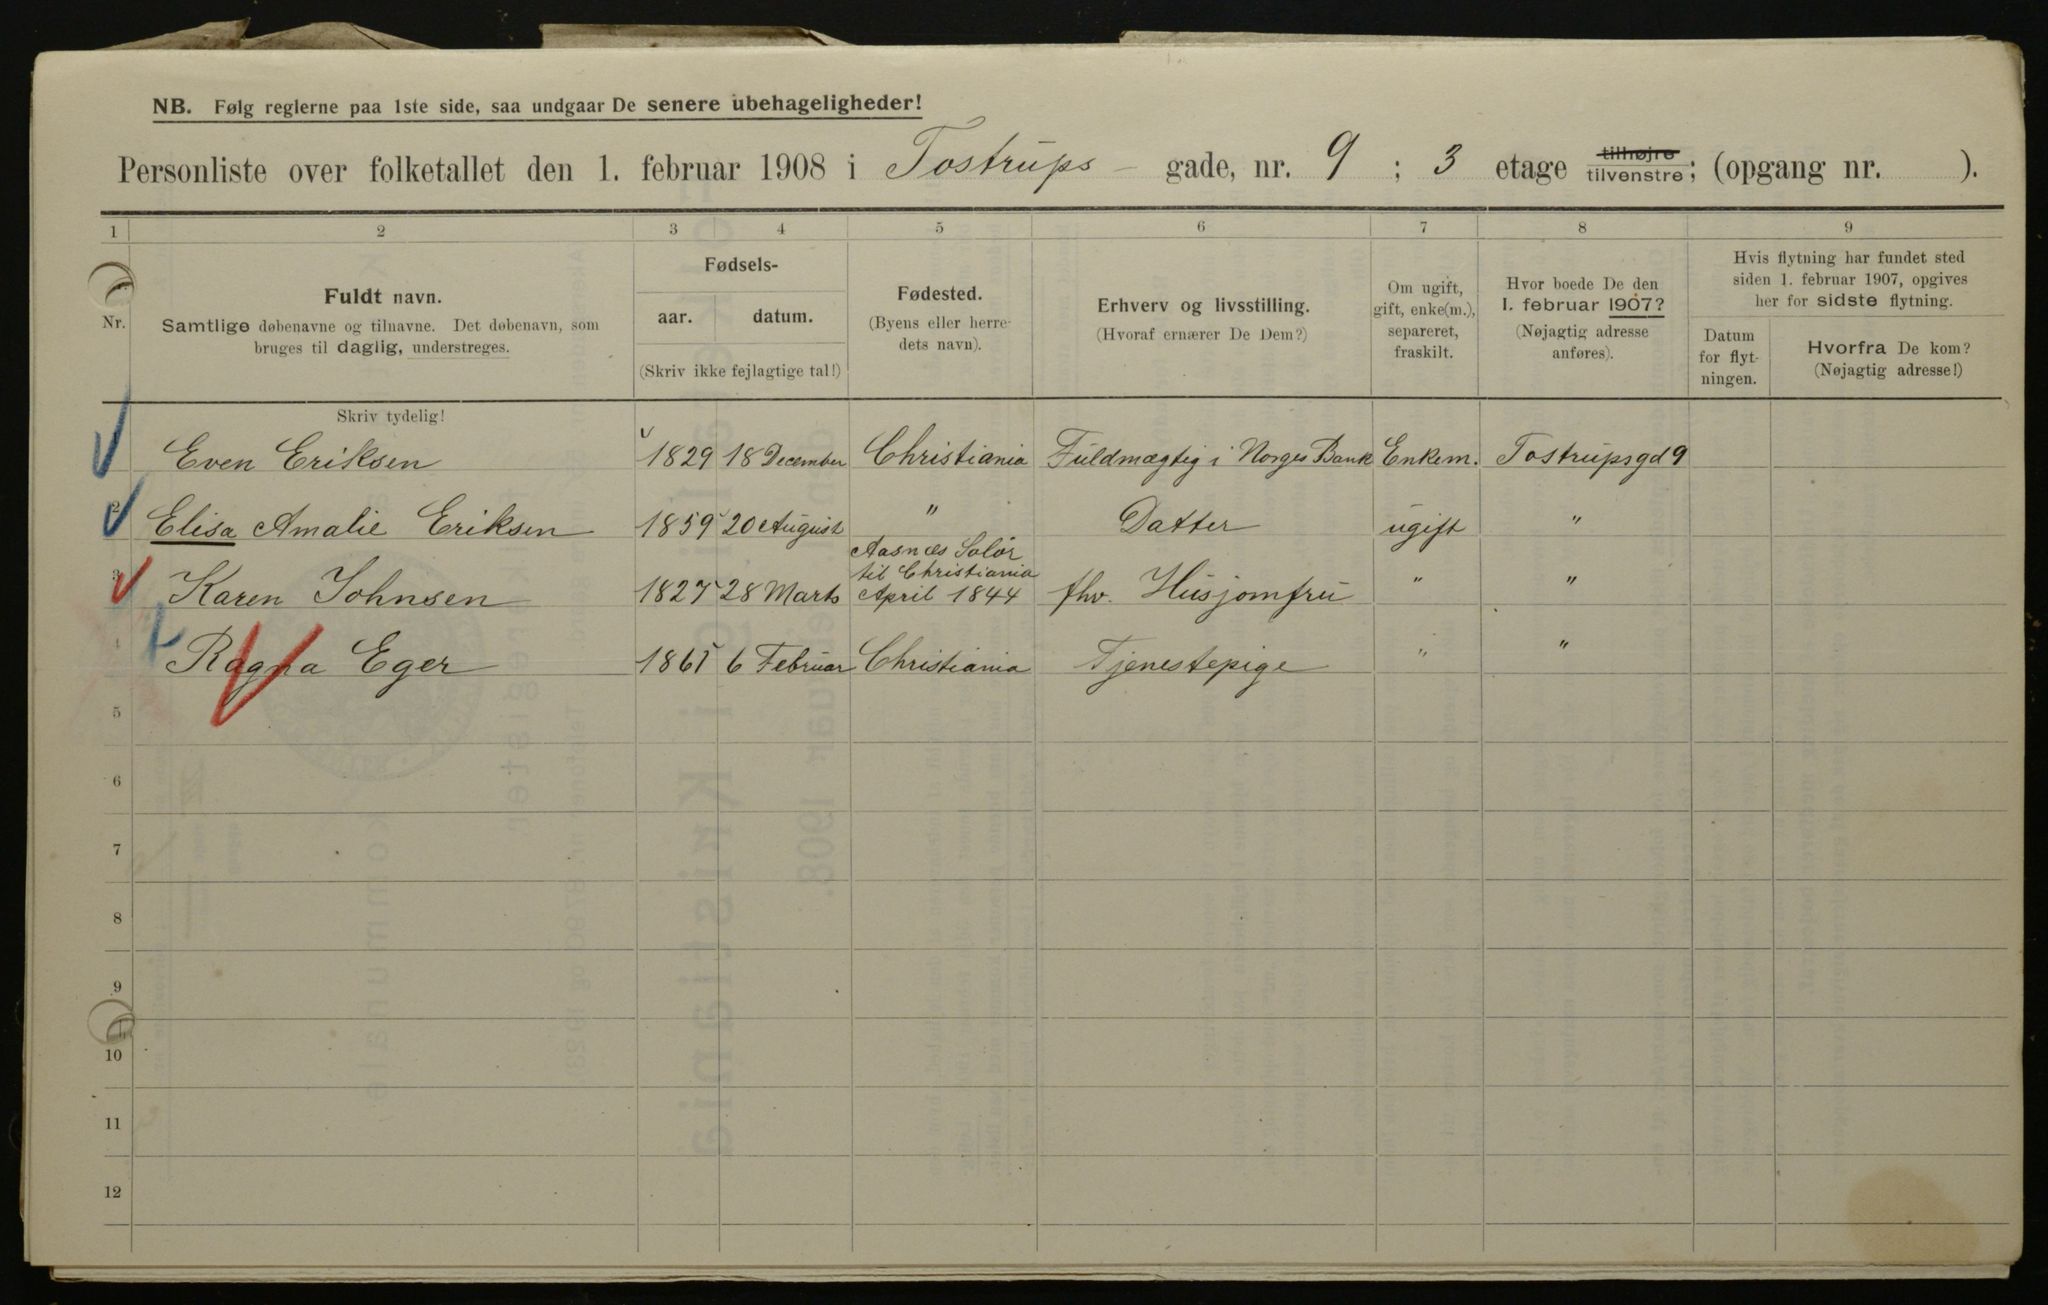 NB. Følg reglerne paa 1ste side, saa undgaar De senere ubehageligheder!
Personliste over folketallet den 1. februar 1908 i Tostrups - gade, nr. 9 ; 3 etage tilhøjre tilvenstre; (opgang nr. ).
1 2 3 4 5 6 7 8 9
Nr.
Fuldt navn.
Samtlige døbenavne og tilnavne. Det døbenavn, som
bruges til daglig, understreges.
Skriv tydelig!
Fødsels-
aar. datum.
(Skriv ikke fejlagtige tal!)
Fødested.
(Byens eller herre-
dets navn).
Erhverv og livsstilling.
(Hvoraf ernærer De Dem?)
Om ugift,
gift, enke(m.),
separeret,
fraskilt.
Hvor boede De den
1. februar 1907?
(Nøjagtig adresse
anføres).
Hvis flytning har fundet sted
siden 1. februar 1907, opgives
her for sidste flytning.
Datum
for flyt-
ningen.
Hvorfra De kom?
(Nøjagtig adresse!)
Even Eriksen 1829 18 December Christiania Fuldmægtig i Norges Bank Enkem. Tostrupsgd 9
2 Elisa Amalie Eriksen 1859 20 August " Datter ugift "
Aasnes Solør
til Christiania
3 Karen Johnsen 1827 28 Marts April 1844 fhv. Husjomfru " "
4 Ragna Eger 1865 6 Februar Christiania Tjenestepige " "
5
6
7
8
9
10
11
12